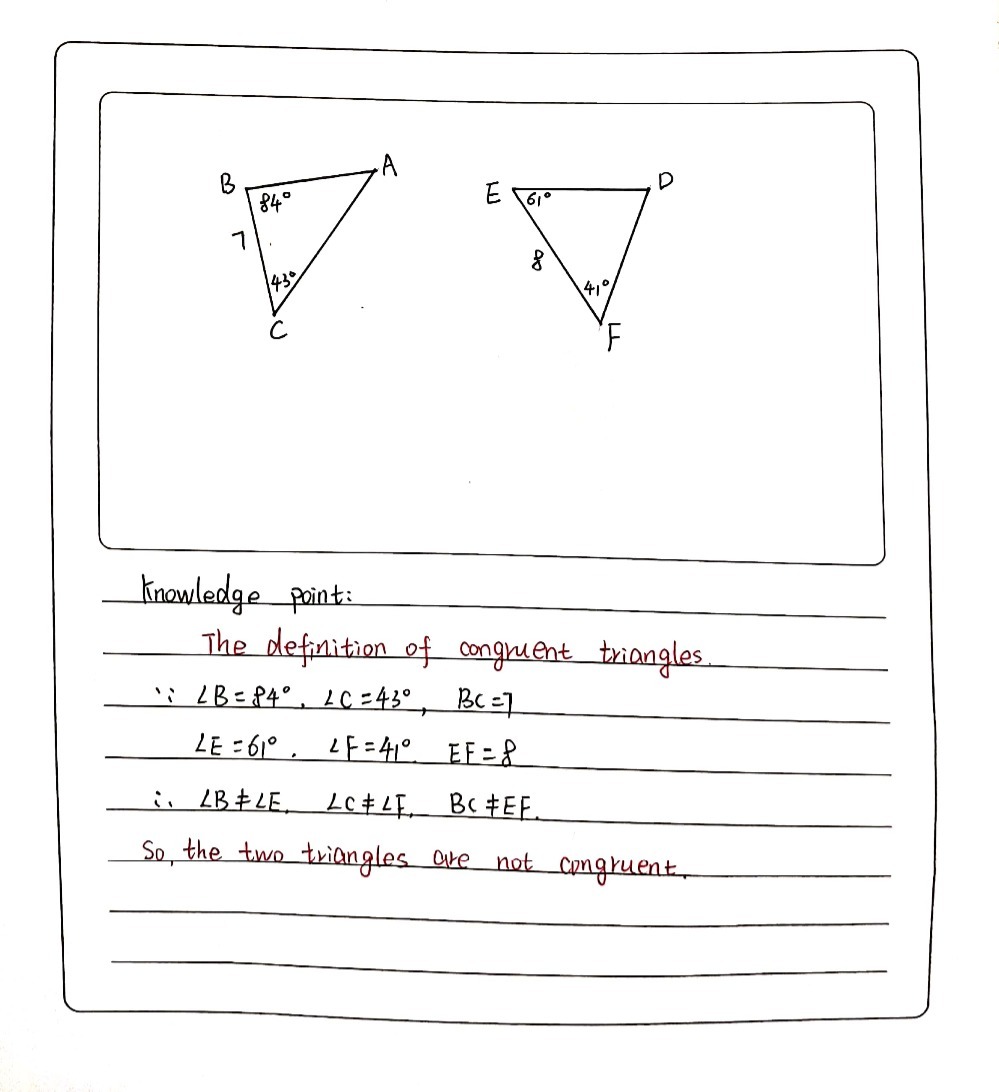 B A
84°
7
43°
C
E D
61°
8
41°
F
Knowledge point:
The definition of congruent triangles.
∵ ∠B=84°. ∠C=43°, BC=7
∠E=61°. ∠F=41°. EF=8
∴ ∠B≠∠E, ∠C≠∠F, BC≠EF.
So, the two triangles are not congruent.